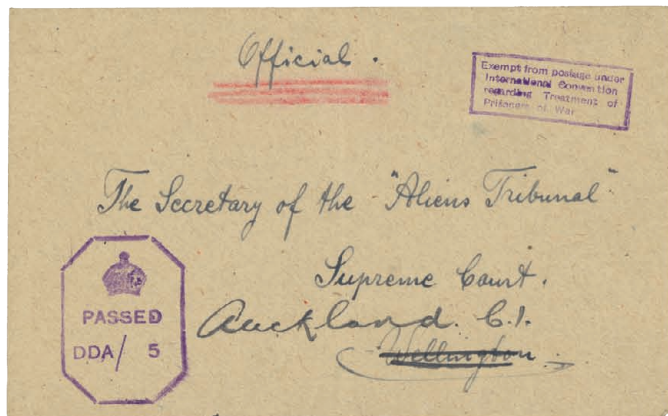 Official.
Exempt from postage under
International Convention
regarding Treatment of
Prisoners of War
The Secretary of the "Aliens Tribunal"
Supreme Court.
Auckland. C.1.
Wellington.
PASSED
DDA/ 5